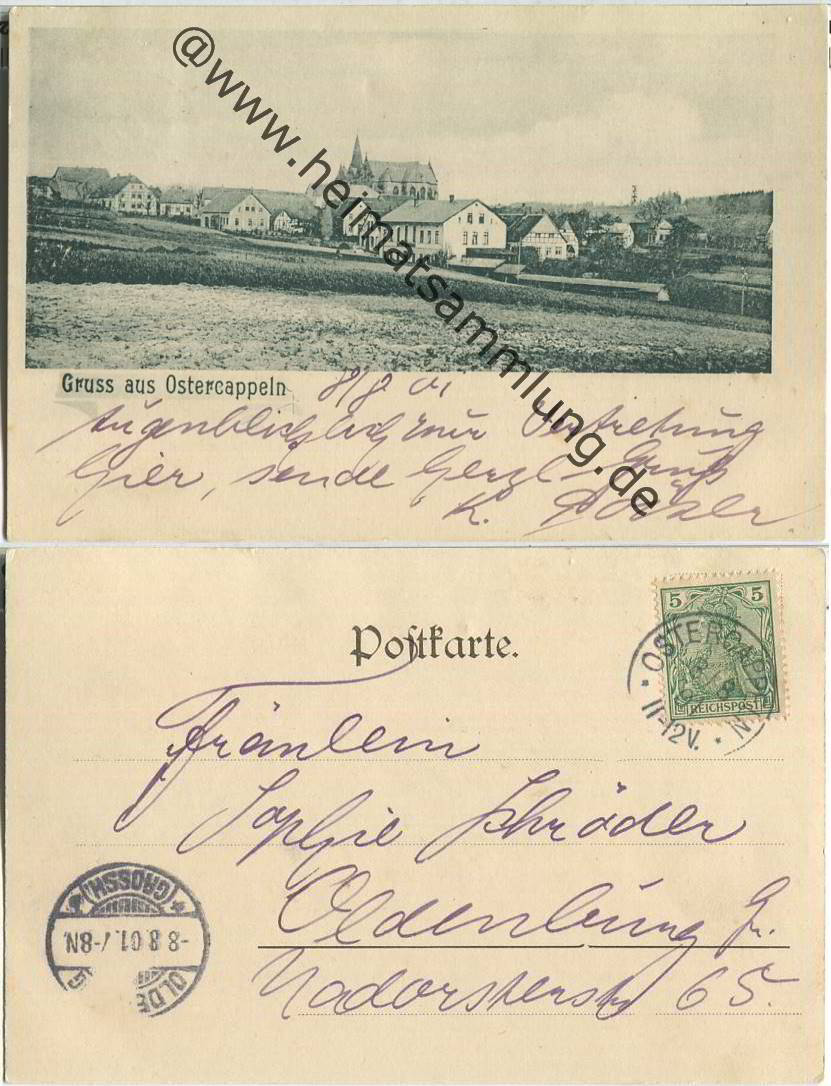 @www.heimatsammlung.de
Gruss aus Ostercappeln
8/8. 01
Augenblicklich zur Vertretung
hier, sende herzl. Gruß
K.
Postkarte.
5 5
REICHSPOST
* OSTERCAPP
11-12V. *
Fräulein
Sophie Schröder
Oldenburg Gr.
Nadorsterstr 65.
* (GROSSH.) *
-8.8.01.7-8N.
OLDE